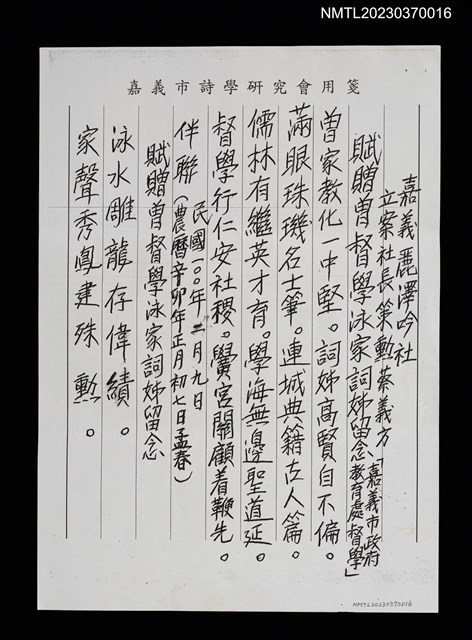 NMTL20230370016
嘉義市詩學研究會用箋
嘉義麗澤吟社
立案社長策勳蔡義方「嘉義市政府教育處督學」
賦贈曾督學泳家詞姊留念
曾家教化一中堅。詞姊高賢自不偏。
滿眼珠璣名士筆。連城典籍古人篇。
儒林有繼英才育。學海無邊聖道延。
督學行仁安社稷。黌宮關顧着鞭先。
民國一〇〇年二月九日
伴聯（農曆辛卯年正月初七日孟春）
賦贈曾督學泳家詞姊留念
泳水雕龍存偉績。
家聲秀鳳建殊勳。
NMTL20230370016